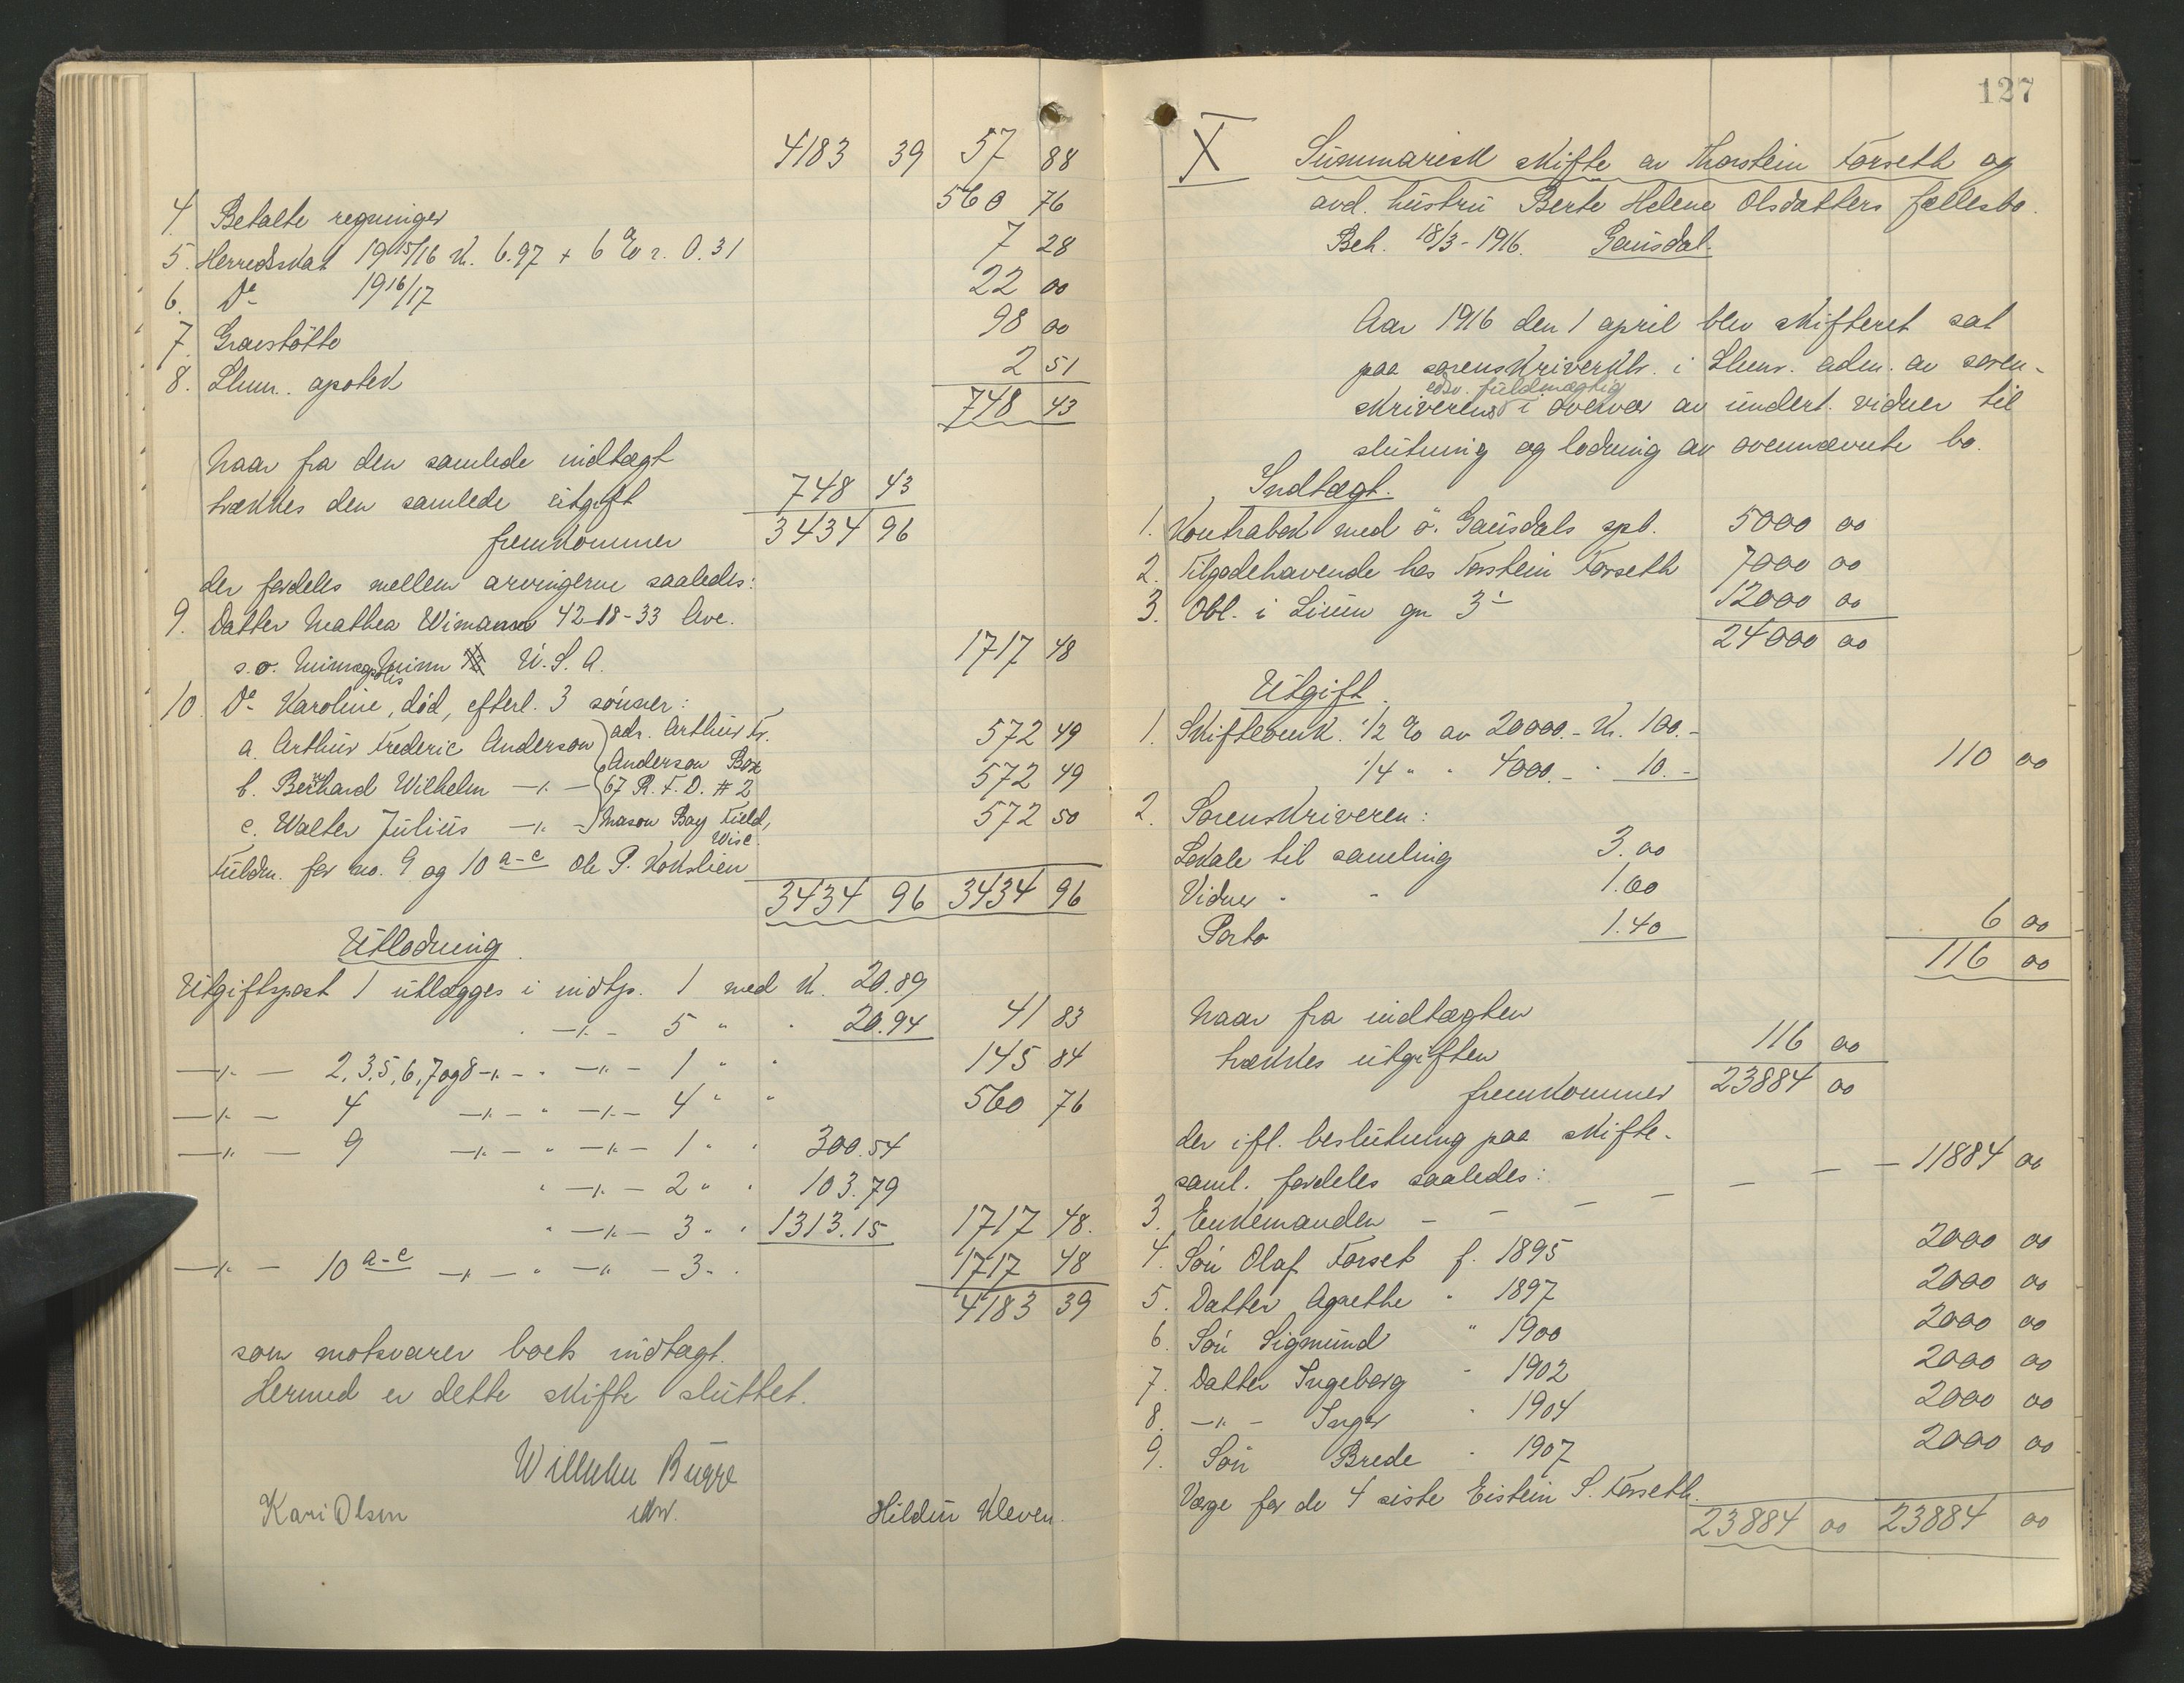 4183 39 57 88
4 Betalte regninger 560 76
5. Herredskat 1915/16 K. 6.97 + 6 % r. 0.31 7 28
6. Do 1916/17 22 00
7. Gravstøtte 98 00
8. Llhmr. apotek 2 51
748 43
Naar fra den samlede indtægt
trækkes den samlede utgift 748 43
fremkommer 3434 96
der fordeles mellem arvingerne saaledes:
9. Datter Mathea Wimann 42-18-33 Ave.
s.o. Minneapolis Minn U.S.A. 1717 48
10. Do Karoline, død, efterl. 3 sønner:
a. Arthur Frederic Anderson adr. Arthur Fr. 572 49
Anderson Box
b. Bernhard Wilhelm —"— 67 R.F.D. #2 572 49
c. Walter Julius —"— Mason Bay Field, 572 50
Wisc.
Fuldm. for no. 9 og 10 a-c Ole P. Kokslien
3434 96 3434 96
Utlodning.
Utgiftspost 1 utlægges i indtp. 1 med K. 20.89
" —"— 5 " " 20.94 41 83
—"— 2,3,5,6,7 og 8 —"— " —"— 1 " " 145 84
—"— 4 —"— " —"— 4 " " 560 76
—"— 9 —"— " —"— 1 " " 300.54
" —"— 2 " " 103.79
" —"— 3 " " 1313.15 1717 48.
—"— 10 a-c —"— " —"— 3 " " 1717 48
4183 39
som motsvarer boets indtægt.
Hermed er dette skifte sluttet.
Wilhelm Bugge
Kari Olsen Hildur Kleven.
127
X Summarisk skifte av Thorstein Forseth og
avd. hustru Berte Helene Olsdatters fællesbo.
Beh. 18/3-1916. Gausdal.
Aar 1916 den 1 april blev skifteret sat
paa sorenskriverktr. i Llhmr. adm. av soren-
edsv. fuldmægtig
skriverens i overvær av undert. vidner til
slutning og lodning av ovennævnte bo.
Indtægt.
1. Kontrabok med ø. Gausdals spb. 5000 00
2. Tilgodehavende hos Torstein Forseth 7000 00
3. Obl. i Linum gn 3 1 12000 00
24000 00
Utgift.
1. Skiftebeh. 1/2 % av 20000.- K. 100.-
1/4 " " 4000.- " 10.- 110 00
2. Sorenskriveren:
Lokale til samling 3.00
Vidner " " 1.60
Porto 1.40 6 00
116 00
Naar fra indtægten
trækkes utgiften 116 00
fremkommer 23884 00
der ifl. beslutning paa skifte-
saml. fordeles saaledes:
3. Enkemanden - - - - - - 11884 00
4. Søn Olaf Forset f. 1895 2000 00
5. Datter Agnethe " 1897 2000 00
6. Søn Sigmund " 1900 2000 00
7. Datter Ingeborg " 1902 2000 00
8. —"— Inger " 1904 2000 00
9. Søn Brede " 1907 2000 00
Værge for de 4 siste Eistein S. Forseth.
23884 00 23884 00